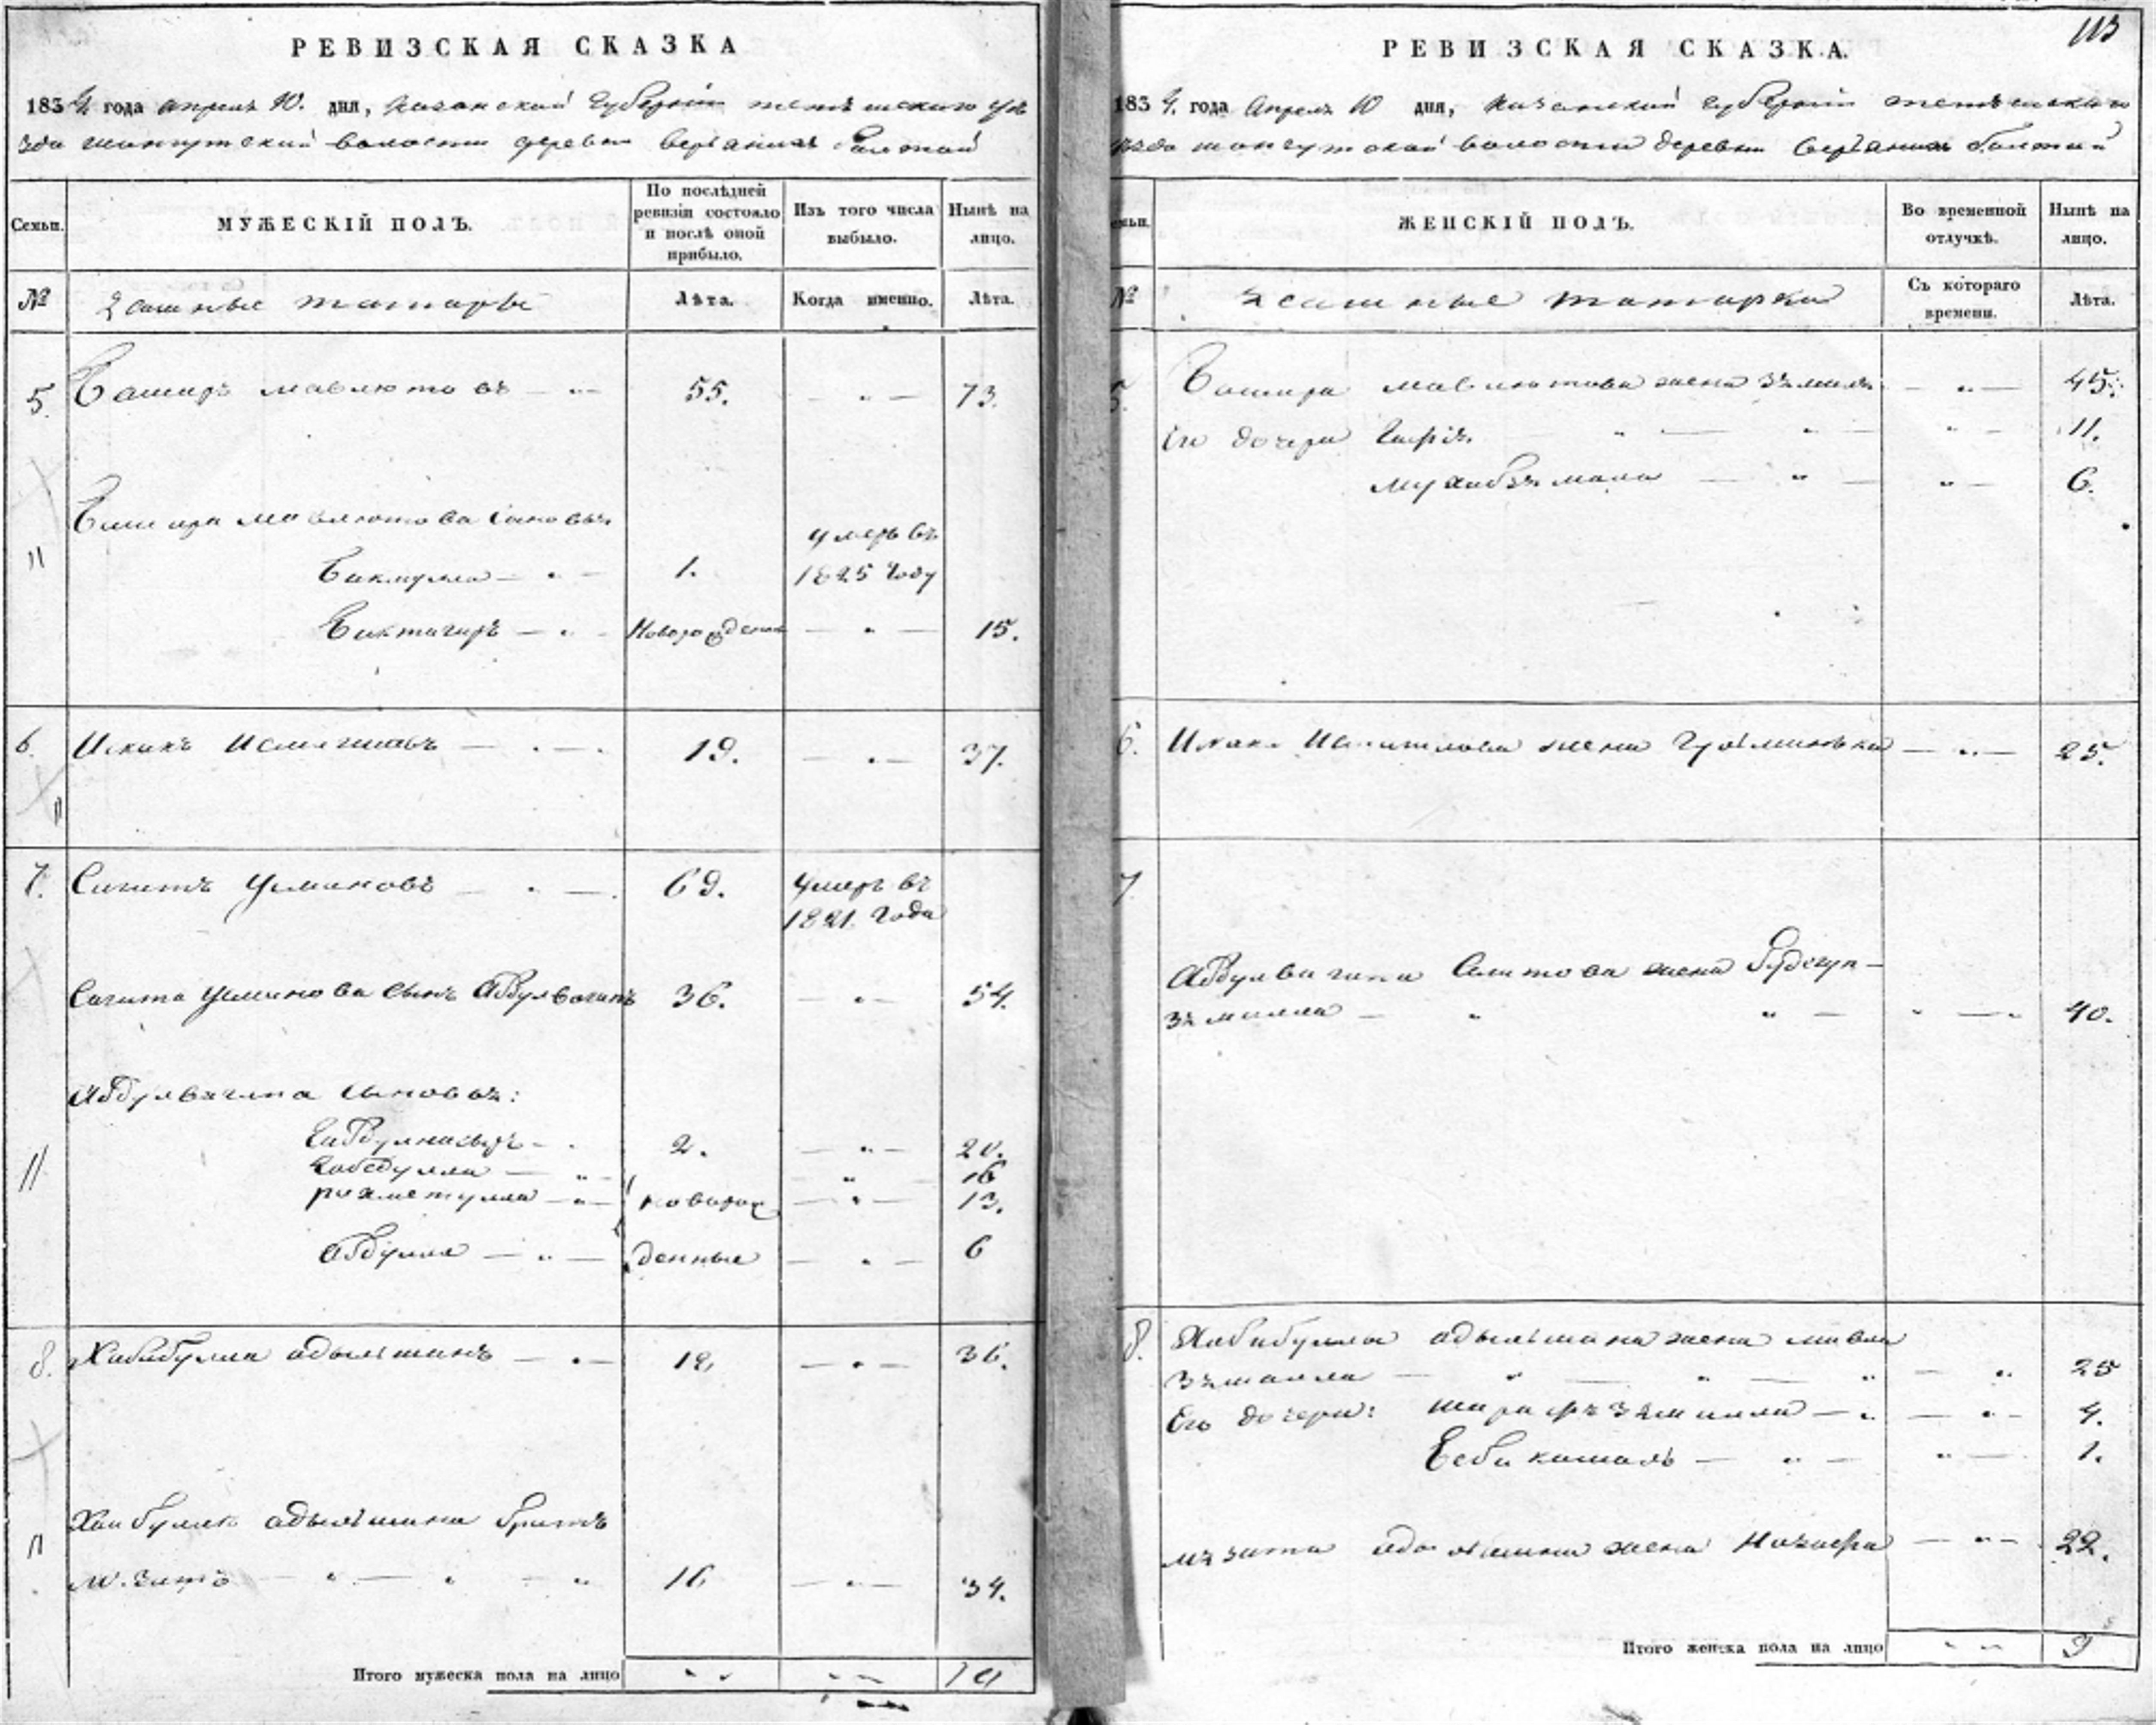 РЕВИЗСКАЯ СКАЗКА
1834 года апреля 10. дня, Казанской губернии тетюшского уе
зда шонгутской волости деревни верхнихъ Балтай
Семьи.
МУЖЕСКІЙ ПОЛЪ.
По послѣдней ревизіи состояло и послѣ оной прибыло.
Изъ того числа выбыло.
Нынѣ на лицо.
№
Ясашные татары
Лѣта.
Когда именно.
Лѣта.
5. Баширъ мавлютовъ 55. 73.
Башира мавлютова сыновья
умеръ въ
Бикмулла 1. 1825 году
Биктагиръ Новорожденный 15.
6. Искакъ Исмагиловъ 19. 37.
7. Сагитъ Усмановъ 69. умеръ въ
1821 года
Сагита Усманова сынъ Абдулвагапъ 36. 54.
Абдулвагапа сыновья:
Габдулнасыръ 2. 20.
Забедулла 16
рахметулла новорож 13.
Абдулла денные 6
8. Хабибулла адылшинъ 18 36.
Хабибуллы адылшина братъ
Мязитъ 16 34.
Итого мужеска пола на лицо 10
113
РЕВИЗСКАЯ СКАЗКА.
1834. года Апреля 10 дня, Казанской губернии тетюшскаго
уезда шонгутской волости деревни верхнихъ балтай
ЖЕНСКІЙ ПОЛЪ.
Во временной отлучкѣ.
Нынѣ на лицо.
№
Ясашные татарки
Съ котораго времени.
Лѣта.
5. Башира мавлютова жена 45.
Его дочери 11.
6.
6. Искака Исмагилова жена 25.
7
Абдулвагапа Сагитова жена Бадегул-
зямилла 40.
8. Хабибуллы адылшина жена
25
Его дочери: 4.
Бебикамаль 1.
Мязита адылшина жена 22.
Итого женска пола на лицо 9